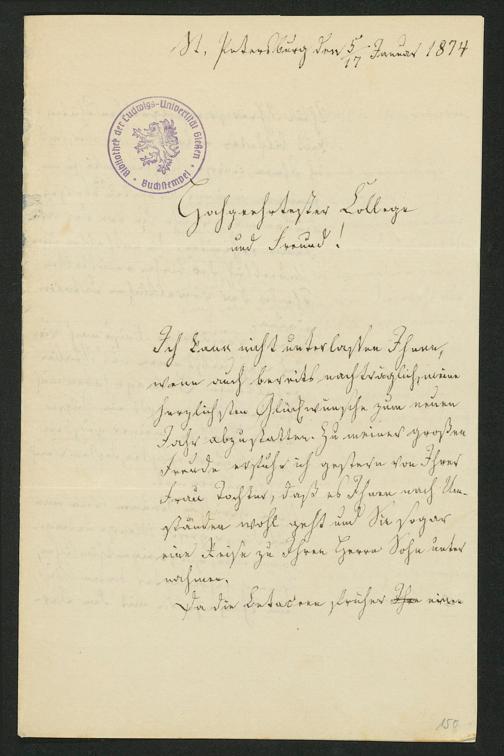 St. Petersburg den 5/17 Januar 1874
Bibliothek der Ludwigs-Universität Gießen
Buchstempel
Hochgeehrtester College
und Freund!
Ich kann nicht unterlassen Ihnen,
wenn auch bereits nachträglich, meine
herzlichsten Glückwünsche zum neuen
Jahr abzustatten. Zu meiner großen
Freude erfuhr ich gestern von Ihrer
Frau Tochter, daß es Ihnen nach Um-
ständen wohl geht und Sie sogar
eine Reise zu Ihrem Herrn Sohn unter
nahmen.
Da die Cetaceen früher Ihre einen
150